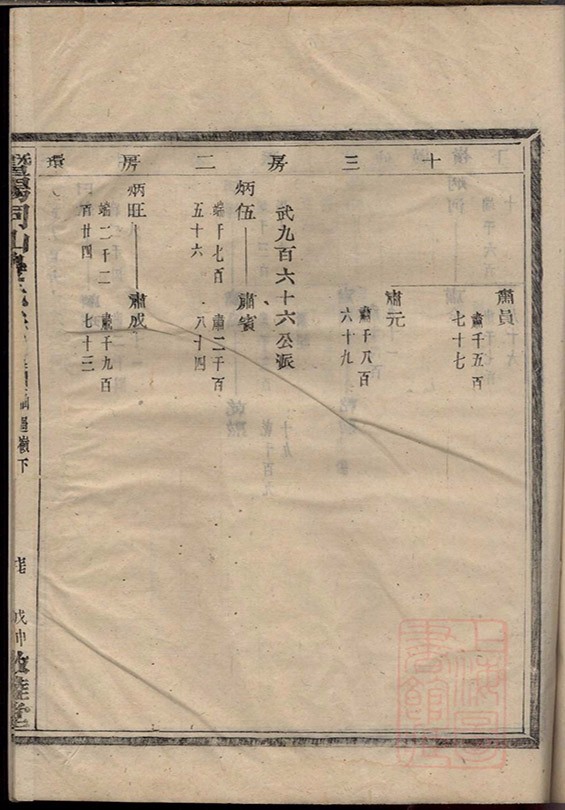 十三房二房環
肅員
肅千五百
七十七
肅元
肅千八百
六十九
武九百六十六公派
炳伍 肅賓
端千七百 肅二千百
五十六 八十四
炳旺 肅成
端二千二 肅千九百
百廿四 七十三
暨陽同山
嶺下
戊申